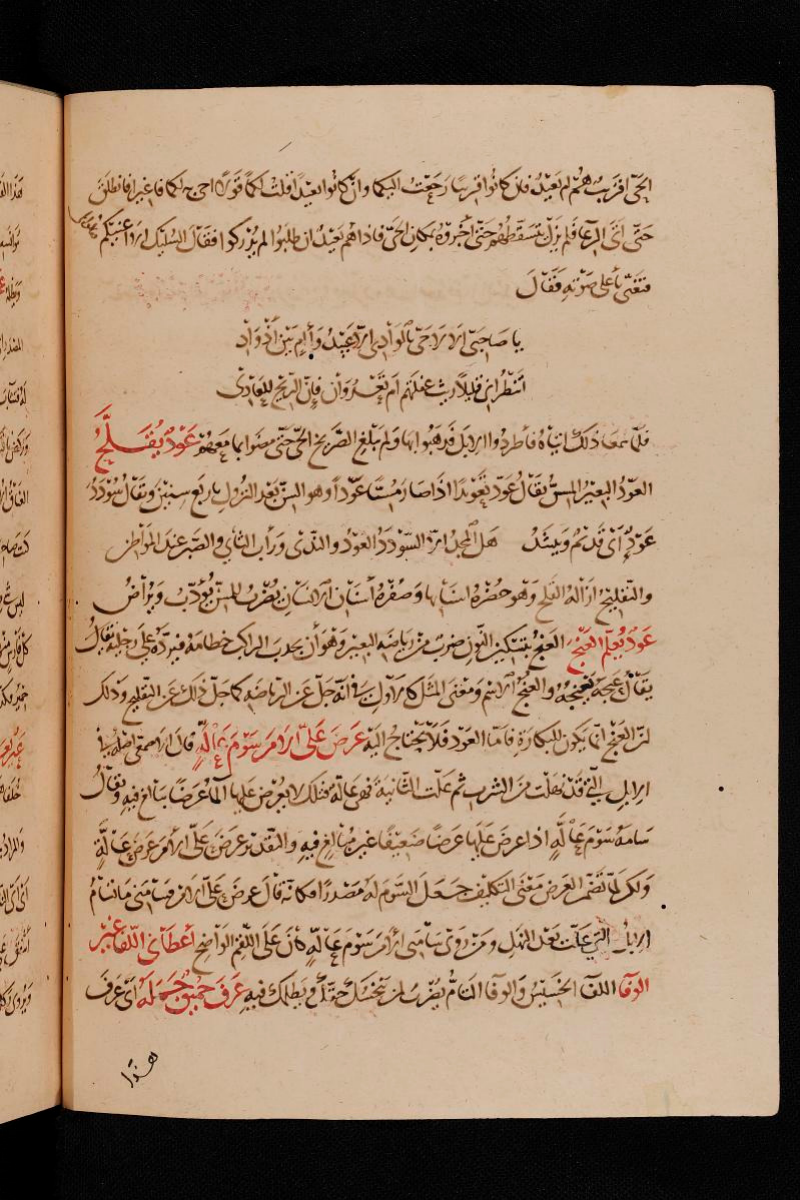 الحيّ اقريب هُم ام بعيدٌ فان كانوا قريبًا رجعتُ اليكما وان كانوا بعيدًا قلتُ لكما قولًا احى به لكما فاغيرا فانطلق
حتى اتى الرعاء فلم يزل يتسقطهم حتى أخبروه بمكان الحيّ فاذا هم بعيدٌ ان طلبوا لم يُدركوا فقال السُليك الا اغنيكم
فتغنّى بأعلى صوته فقال
يا صاحبيّ الا لا حيّ بالوادي الا عبيدٌ وأامٍ بين أذوادِ
أتنظران قليلًا ريث غفلتهم ام تغدوان فإنّ الريح للعادي
فلمّا سمعا ذلك اتياه فأطردوا الابل فذهبوا بها ولم يبلغ الصريخ الحيّ حتى مضوا بما معهم عَوْدٌ يُقَلَّحُ
العَوْدُ البعيرُ المسنُّ يقال عوّد تعويدًا اذا صار مُسنًّا عَوْدًا وهو السنّ بعد البزول باربع سنين ويقال سُوددٌ
عَوْدٌ أى قديمٌ وينشد هل المجدُ الا السوددُ العَوْدُ والندى ورأب الثأى والصبر عند المواطن
والتقليحُ ازالة القلح وهو خضرة اسنانها وصفرة أسنان الانسان يضرب للمسنّ يؤدّب ويُراضُ
عَوْدٌ يُعلّم العنجَ العنجُ بتسكين النون ضرب من رياضة البعير وهو أن يجذب الراكب خطامه فيردّه على رجليه يقال
يقال عنجه يعنجه والعنجُ الاسم ومعنى المثل كالاول فى أنّه جلّ عن الرياضة كما جلّ ذلك عن التقليح وذلك
لانّ العنج انما يكون للبكارة فامّا العود فلا يحتاج اليه عَرضَ عليّ الامر سَوْمَ عالّةٍ قال الاصمعى اصله فى
الابل التى قد نهلت من الشرب ثم علّت الثانية فهى عالّة فتلك لا يعرض عليها الماء عرضًا يبالغ فيه ويقالُ
سامه سَوْمَ عالّةٍ اذا عرض عليها عرضًا ضعيفًا غير مُبالغ فيه والتقدير عرض عليّ الامر عرض عالّةٍ
ولكن لمّا تضمن العرض معنى التكليف جعل السوم له مصدرًا فكأنّه قال عرض عليّ الامر فسامنى ما تُسامُ
الابل التى علّت بعد النهل ومن روى سامنى الامر سوم عالّةٍ كان على اللقم الواضح أعطانى اللفاءَ غير
الوفاءِ اللفاء الخسيسُ والوفاء التامّ يضرب لمن يبخسك حقّك ويظلمك فيه عَرَفَ حُميقٌ جملَهُ أى عرف
هذا